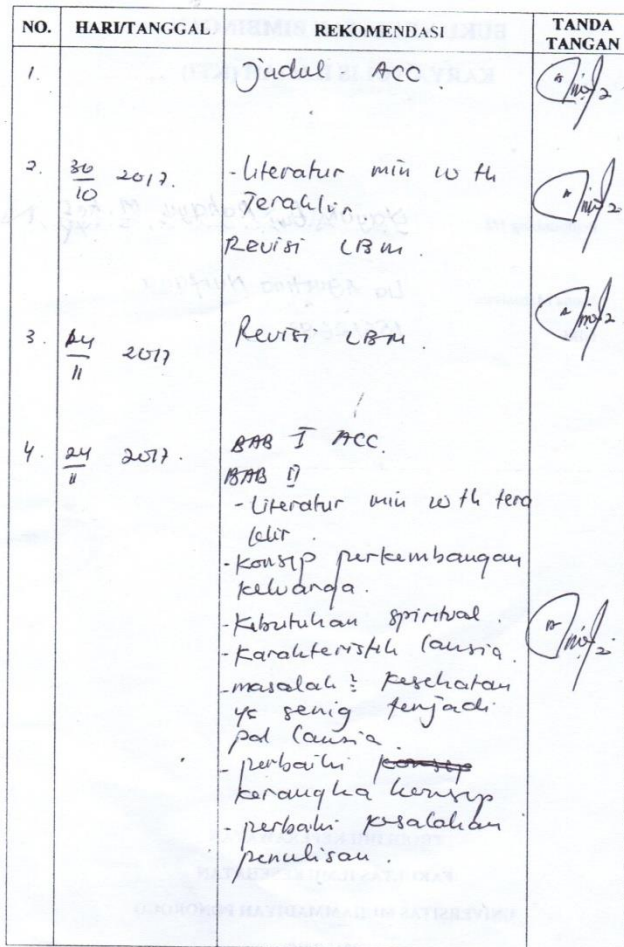 NO. HARI/TANGGAL REKOMENDASI TANDA TANGAN
1. Judul ACC.
2. 30/10 2017. - Literatur min 10 th
Terakhir.
Revisi LBM.
3. 24/11 2017 Revisi LBM
4. 24/11 2017. BAB I ACC.
BAB II
- Literatur min 10 th tera
khir.
- Konsep perkembangan
keluarga.
- Kebutuhan spiritual.
- Karakteristik lansia.
- masalah2 kesehatan
yg sering terjadi
pd lansia.
- perbaiki konsep
kerangka konsep
- perbaiki kesalahan
penulisan.